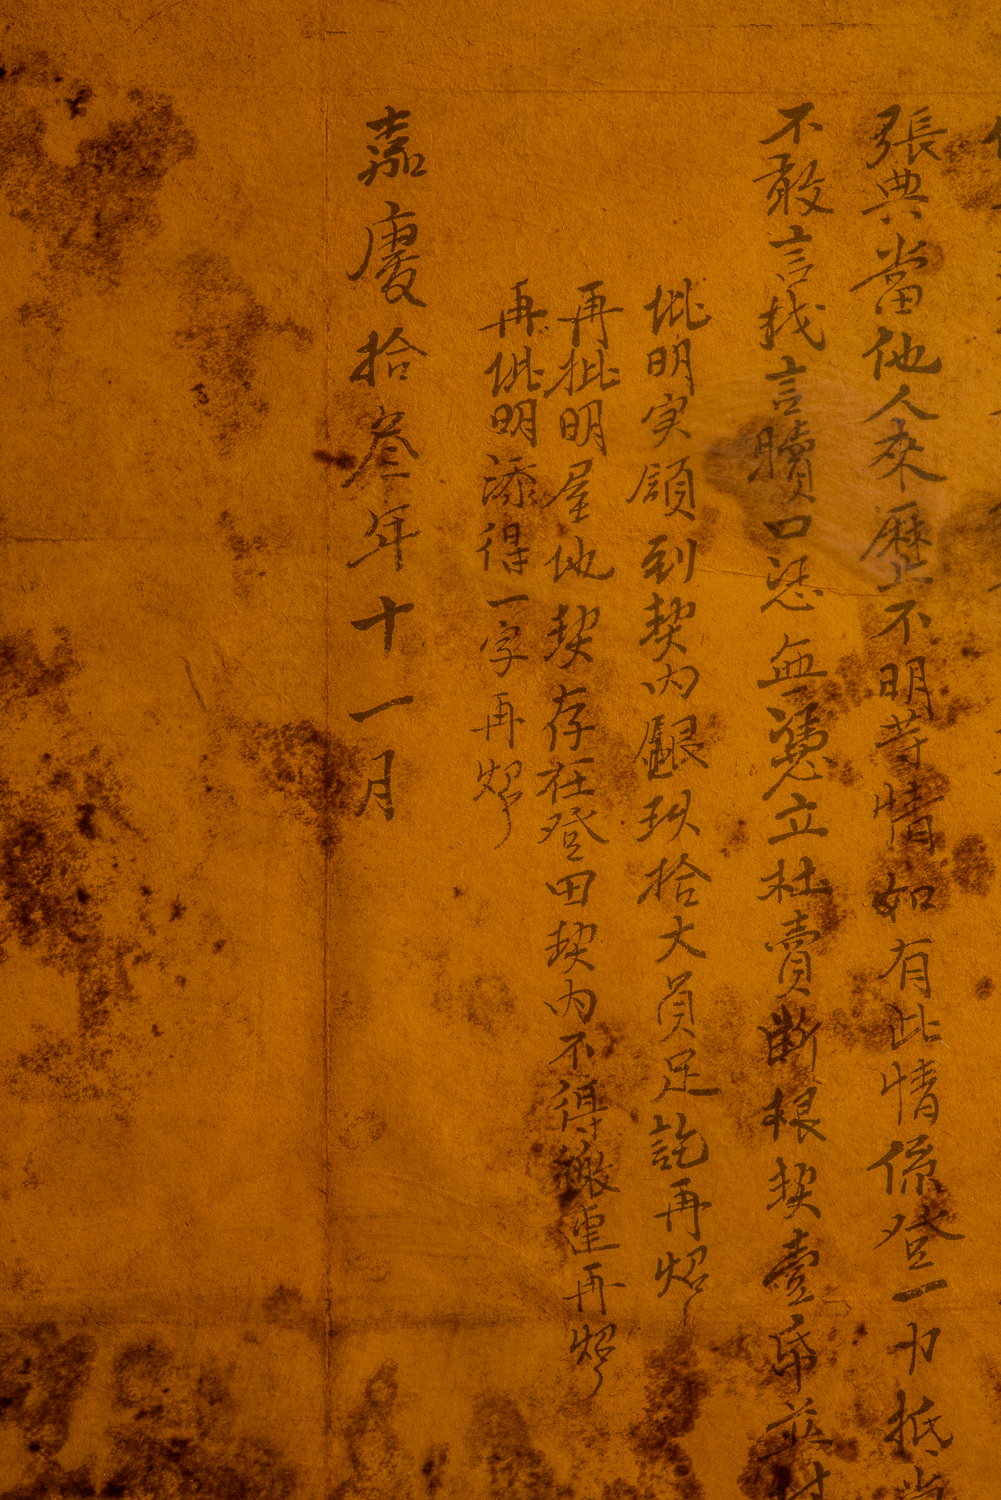 張典當他人來歷不明等情如有此情係登一力抵当
不敢言找言贖口恐無憑立杜賣断根契壹帋並付
批明実領到契内銀玖拾大員足訖再炤
再批明屋地契存在登田契内不得繳連再炤
再批明添得一字再炤
嘉慶拾叁年十一月